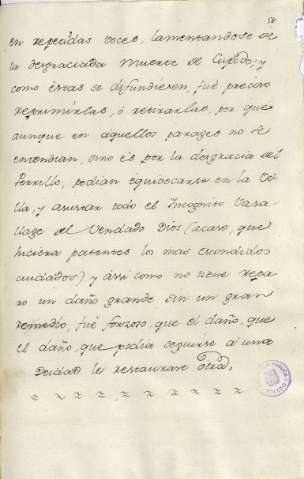 58
en repetidas voces, lamentandose de
la desgraciada muerte de Cupido; y
como éstas se difundiesen, fué preciso
reprimirlas, ó retirarlas, por que
aunque en aquellos parages no se
entendian, sino es por la desgracia del
Perrillo, podian equivocarse en la
y asustar todo el Incognito Vasa-
llage del Vendado Dios (acaso, que
hiciera patentes los mas escondidos
cuidados) y assi como no tiene repa-
ro un daño grande sin un gran
remedio, fué forzoso, que el daño, que
el daño, que podia seguirse á una
Deidad le restaurase otra.